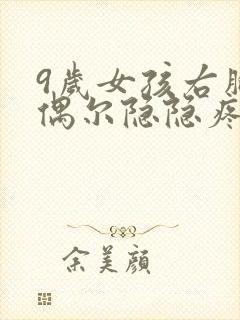 9歲女孩右
偶尔隐隐疼
余美颜